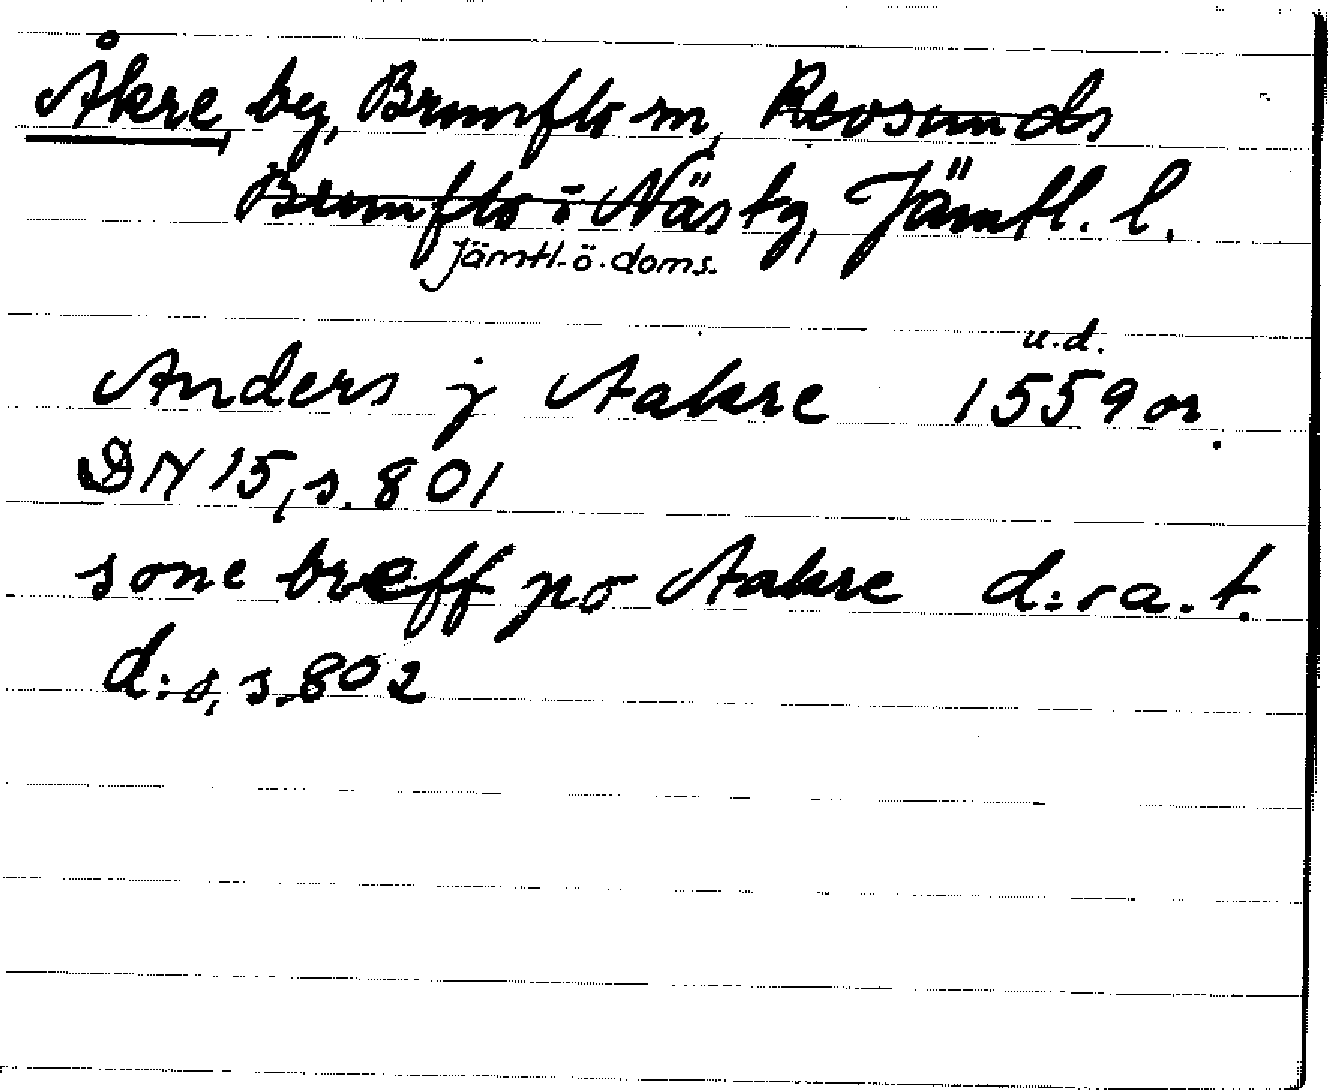 Åkre by, Brunflo sn, Revsunds
Brunflo o Näs tg, Jämtl. l.
Jämtl. ö. doms.
u.d.
Anders j Aakre 1559 or.
DN 15, s. 801
sone breff po Aakre d:o a. t.
d:o, s. 802